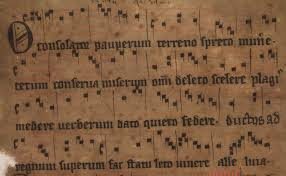 O consolator pauperum terreno spreto mune
terum conserua miserum omni deleto scelere plagis
medere uerberum dato quieto federe ductos ad
regnum superum fac statu leto uiuere alle luia